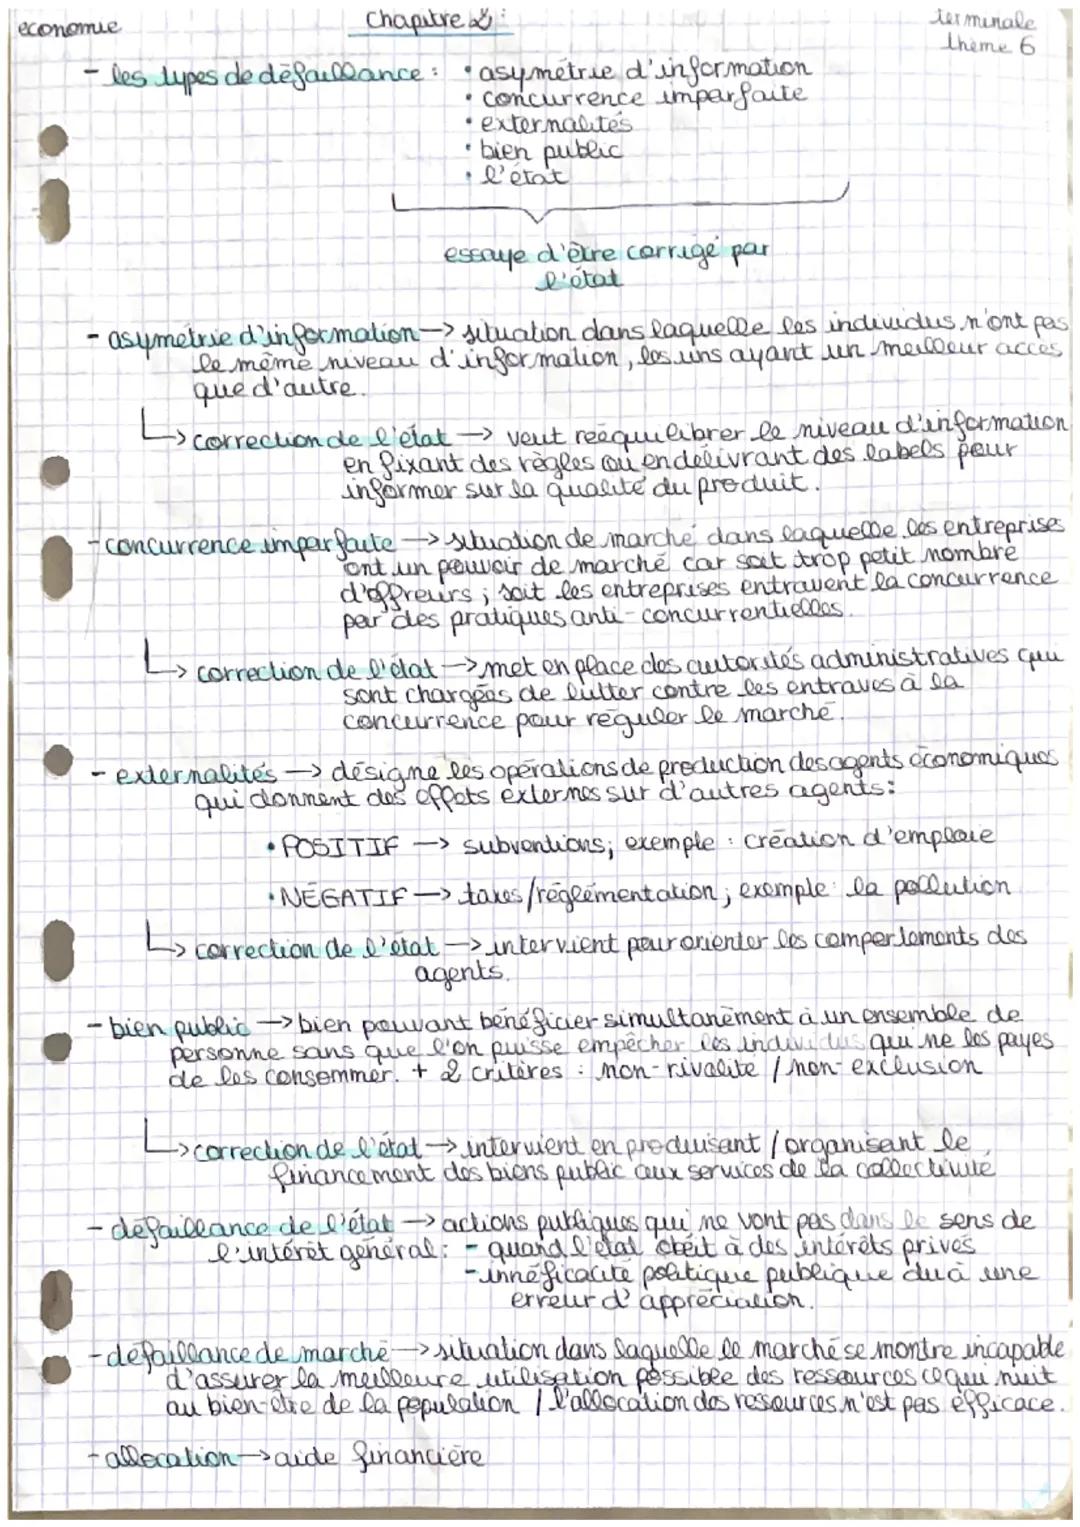 economie
Chapitre 2 :
terminale
thème 6
- les types de défaillance : • asymétrie d'information
• concurrence imparfaite
• externalités
• bien public
• l'état
essaye d'être corrigé par
l'état
- asymétrie d'information → situation dans laquelle les individus n'ont pas
le même niveau d'information, les uns ayant un meilleur accès
que d'autre.
↳ correction de l'état → veut rééquilibrer le niveau d'information
en fixant des règles ou en délivrant des labels pour
informer sur la qualité du produit.
- concurrence imparfaite → situation de marché dans laquelle les entreprises
ont un pouvoir de marché car soit trop petit nombre
d'offreurs ; soit les entreprises entravent la concurrence
par des pratiques anti-concurrentielles.
↳ correction de l'état → met en place des autorités administratives qui
sont chargées de lutter contre les entraves à la
concurrence pour réguler le marché.
- externalités → désigne les opérations de production des agents économiques
qui donnent des effets externes sur d'autres agents :
• POSITIF → subventions ; exemple : création d'emploie
• NÉGATIF → taxes / réglementation ; exemple : la pollution
↳ correction de l'état → intervient pour orienter les comportements des
agents.
- bien public → bien pouvant bénéficier simultanément à un ensemble de
personne sans que l'on puisse empêcher les individus qui ne les payes
de les consommer. + 2 critères : non-rivalité / non-exclusion
↳ correction de l'état → intervient en produisant / organisant le
financement des biens public aux services de la collectivité
- défaillance de l'état → actions publiques qui ne vont pas dans le sens de
l'intérêt général : - quand l'état obéit à des intérêts privés
- innéficacité politique publique du à une
erreur d'appréciation.
- défaillance de marché → situation dans laquelle le marché se montre incapable
d'assurer la meilleure utilisation possible des ressources ce qui nuit
au bien-être de la population / l'allocation des ressources n'est pas efficace.
- allocation → aide financière